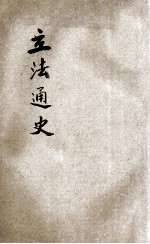 立法通史